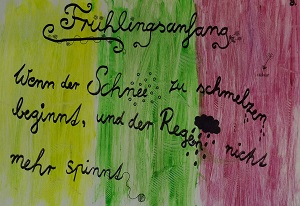 Frühlingsanfang
Wenn der Schnee zu schmelzen
beginnt, und der Regen nicht
mehr spinnt